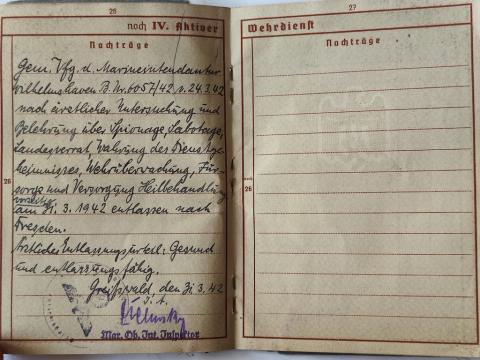 26
noch IV. Aktiver
Nachträge
Gem. Vfg. d. Marineintendantur
Wilhelmshaven B. Nr. 6057/42 v. 24.3.42
nach ärztlicher Untersuchung und
Belehrung über Spionage, Sabotage,
Landesverrat, Wahrung des Dienstge-
heimnisses, Wehrüberwachung, Für-
26
sorge und Versorgung Heilbehandlung
am 31.3.1942 entlassen nach
Dresden.
Ärztliches Entlassungsurteil: Gesund
und entlassungsfähig.
Greifswald, den 31.3.42
I. A.
Mar. Ob. Int. Inspektor
27
Wehrdienst
Nachträge
26